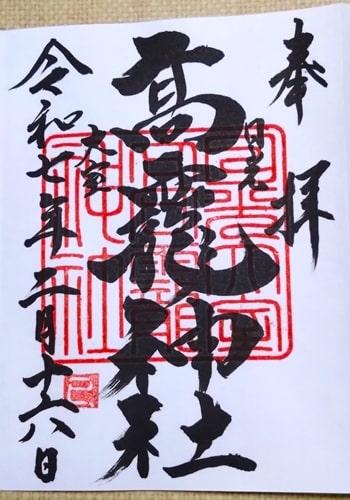 奉拝
日光
高龗神社
大室
令和七年二月十六日